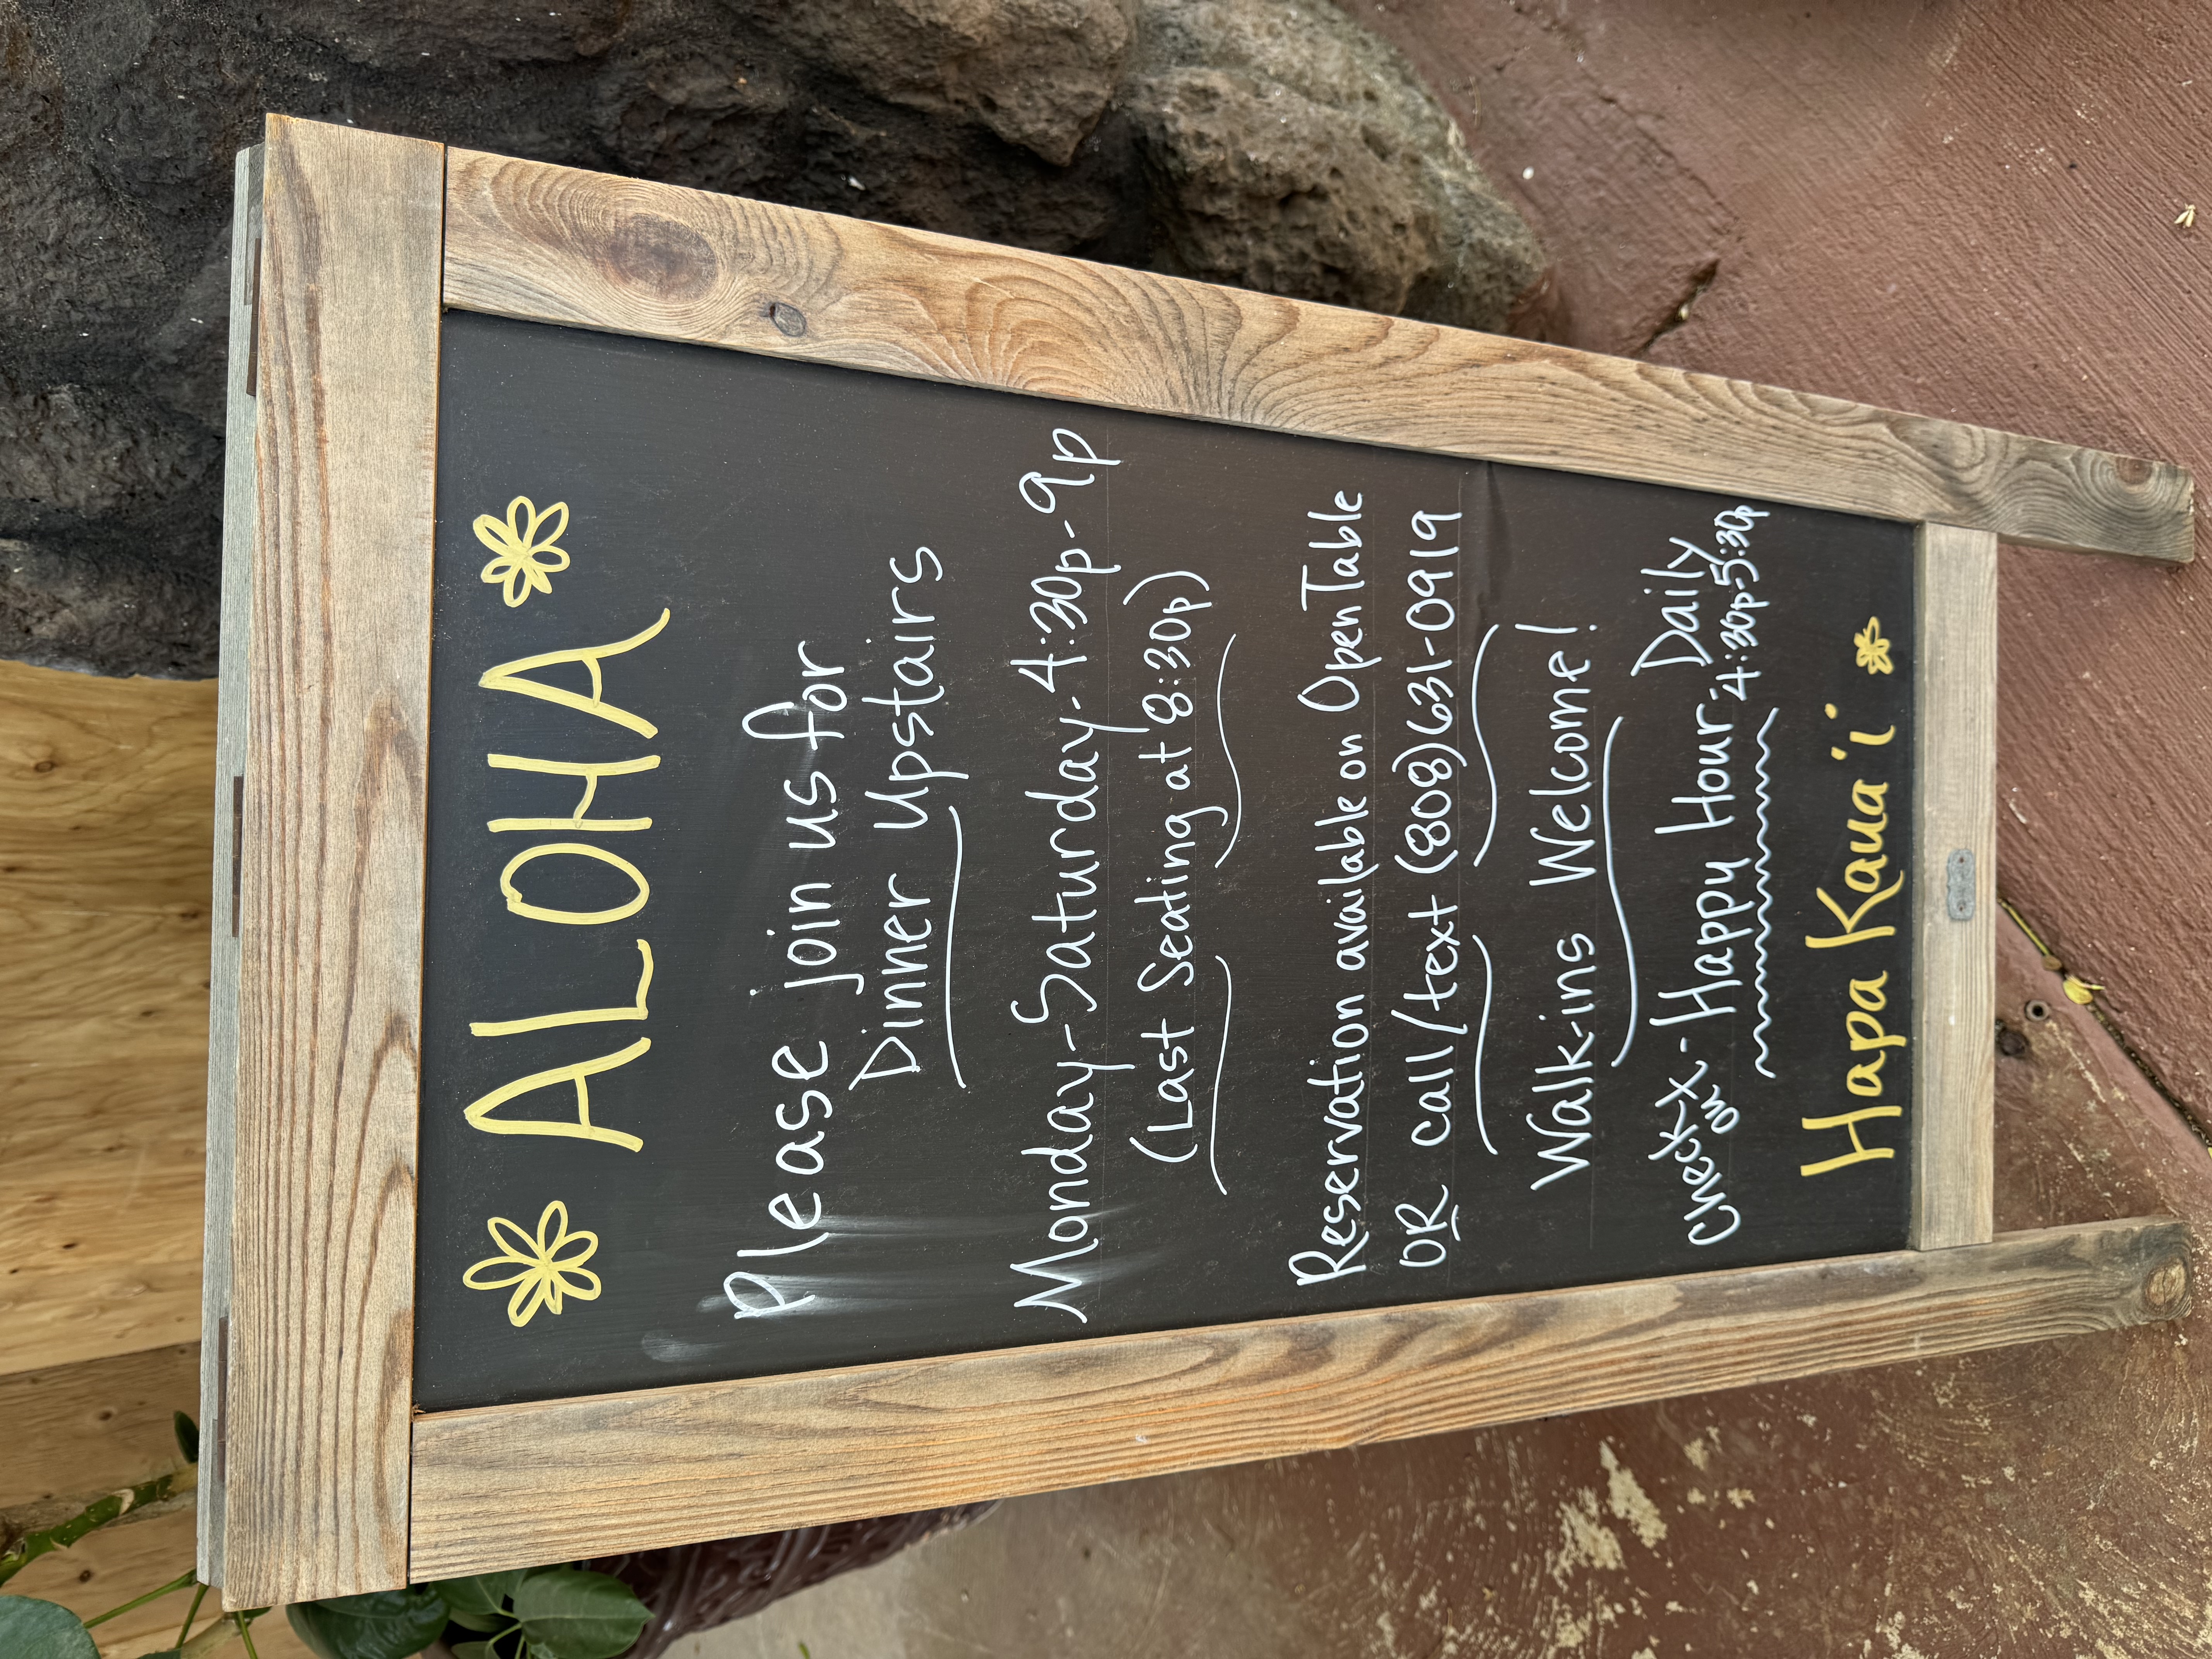 ALOHA
Please join us for
Dinner Upstairs
Monday-Saturday-4:30p-9p
(Last Seating at 8:30p)
Reservation available on OpenTable
OR call/text (808)631-0919
Walk-ins Welcome!
Happy Hour Daily
4:30p-5:30p
Hapa Kaua'i